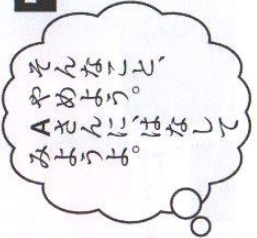 そんなこと、
やめよう。
Aさんに、はなして
みようよ。